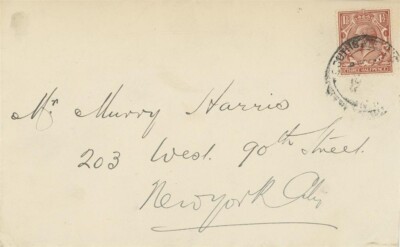 Mr Murry Harris
203 West. 90th Street.
New York City